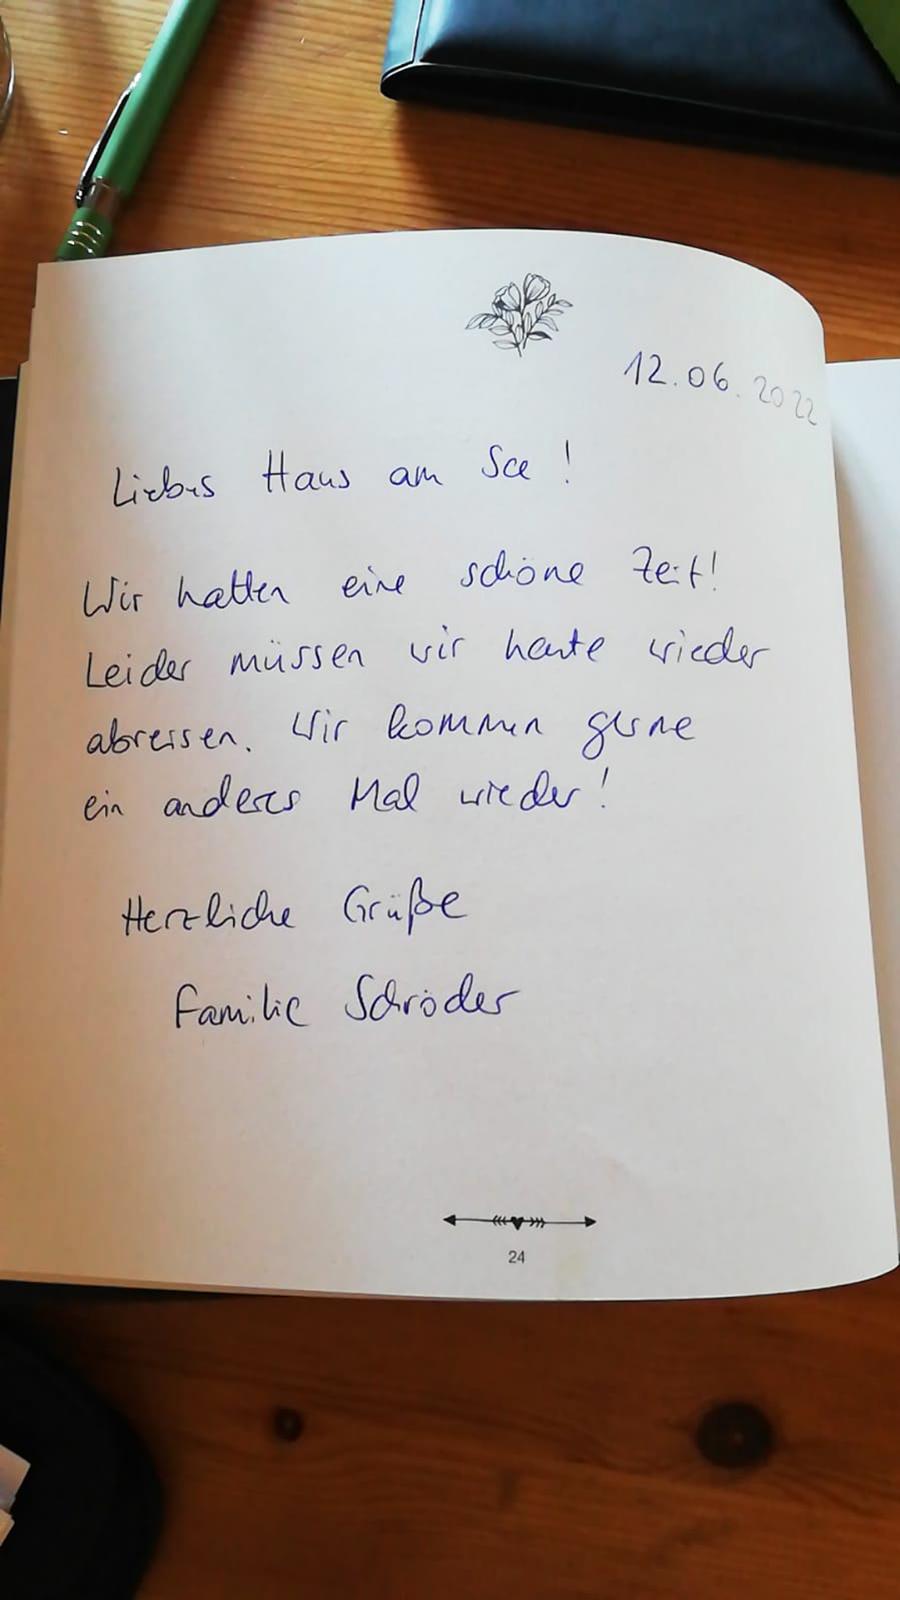 12.06.2022
Liebes Haus am See!
Wir hatten eine schöne Zeit!
Leider müssen wir heute wieder
abreisen. Wir kommen gerne
ein anderes Mal wieder!
Herzliche Grüße
Familie Schröder
24